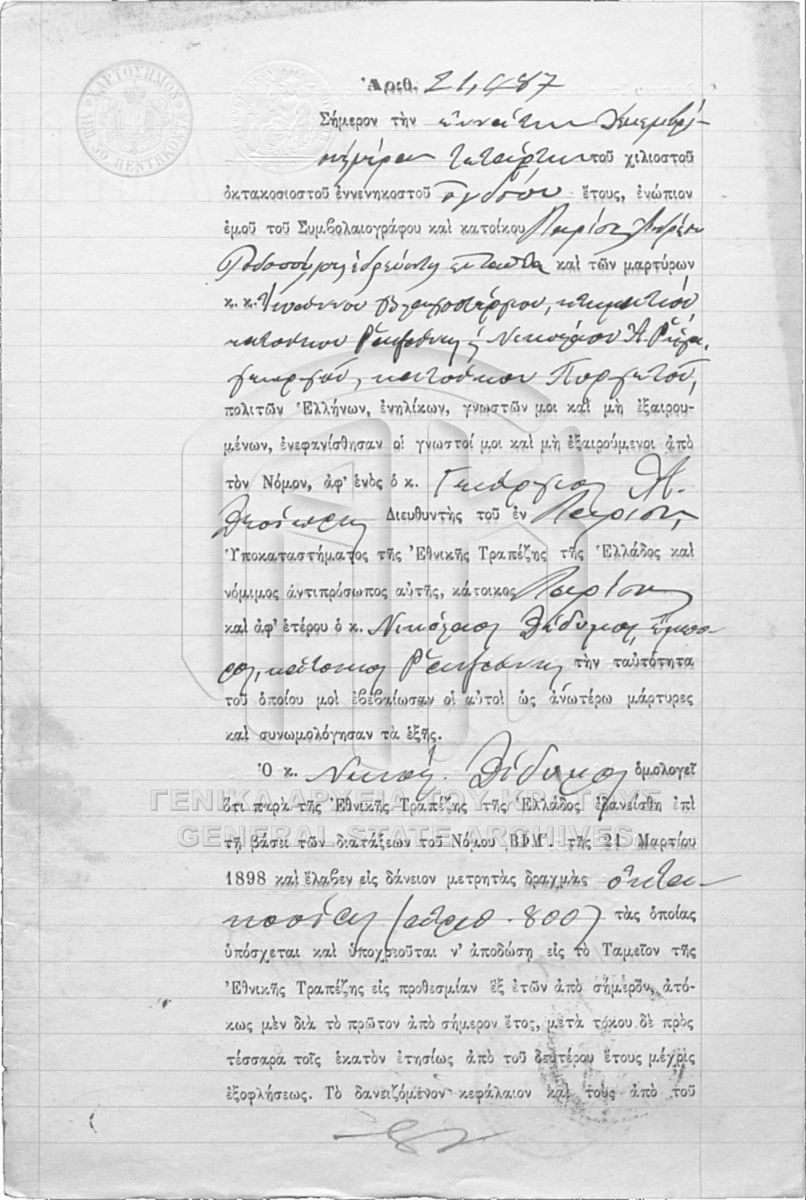 ΧΑΡΤΟΣΗΜΟΝ
Ἀριθ. 21,487
Σήμερον τὴν ἐννάτην Δεκεμβρί-
ου ἡμέραν Τετάρτην τοῦ χιλιοστοῦ
ὀκτακοσιοστοῦ ἐννενηκοστοῦ ὀγδόου ἔτους, ἐνώπιον
ἐμοῦ τοῦ Συμβολαιογράφου καὶ κατοίκου Λαρίσης Ἀνδρέου
Ῥοδοπούλου ἑδρεύοντος ἐνταῦθα καὶ τῶν μαρτύρων
κ. κ. Ἰωάννου κτηματίου
κατοίκου Ῥαψάνης ἢ Νικολάου Ἀ.
γεωργοῦ, κατοίκου Πυργετοῦ,
πολιτῶν Ἑλλήνων, ἐνηλίκων, γνωστῶν μοι καὶ μὴ ἐξαιρου-
μένων, ἐνεφανίσθησαν οἱ γνωστοί μοι καὶ μὴ ἐξαιρούμενοι ἀπὸ
τὸν Νόμον, ἀφ' ἑνὸς ὁ κ. Γεώργιος Ἀ.
Διευθυντὴς τοῦ ἐν Λαρίσῃ
Ὑποκαταστήματος τῆς Ἐθνικῆς Τραπέζης τῆς Ἑλλάδος καὶ
νόμιμος ἀντιπρόσωπος αὐτῆς, κάτοικος Λαρίσης
καὶ ἀφ' ἑτέρου ὁ κ. Νικόλαος Δίδυμος, ἔμπο-
ρος, κάτοικος Ῥαψάνης τὴν ταὐτότητα
τοῦ ὁποίου μοὶ ἐβεβαίωσαν οἱ αὐτοὶ ὡς ἀνωτέρω μάρτυρες
καὶ συνωμολόγησαν τὰ ἑξῆς.
Ὁ κ. Νικόλ. Δίδυμος ὁμολογεῖ
ὅτι παρὰ τῆς Ἐθνικῆς Τραπέζης τῆς Ἑλλάδος ἐδανείσθη ἐπὶ
τῇ βάσει τῶν διατάξεων τοῦ Νόμου ΒΦΜ'. τῆς 21 Μαρτίου
1898 καὶ ἔλαβεν εἰς δάνειον μετρητὰς δραχμὰς ὀκτα-
κοσίας (ἀριθ. 800) τὰς ὁποίας
ὑπόσχεται καὶ ὑποχρεοῦται ν' ἀποδώσῃ εἰς τὸ Ταμεῖον τῆς
Ἐθνικῆς Τραπέζης εἰς προθεσμίαν ἓξ ἐτῶν ἀπὸ σήμερον, ἀτό-
κως μὲν διὰ τὸ πρῶτον ἀπὸ σήμερον ἔτος, μετὰ τόκου δὲ πρὸς
τέσσαρα τοῖς ἑκατὸν ἐτησίως ἀπὸ τοῦ δευτέρου ἔτους μέχρις
ἐξοφλήσεως. Τὸ δανειζόμενον κεφάλαιον καὶ τοὺς ἀπὸ τοῦ
ΓΕΝΙΚΑ ΑΡΧΕΙΑ ΤΟΥ ΚΡΑΤΟΥΣ
GENERAL STATE ARCHIVES